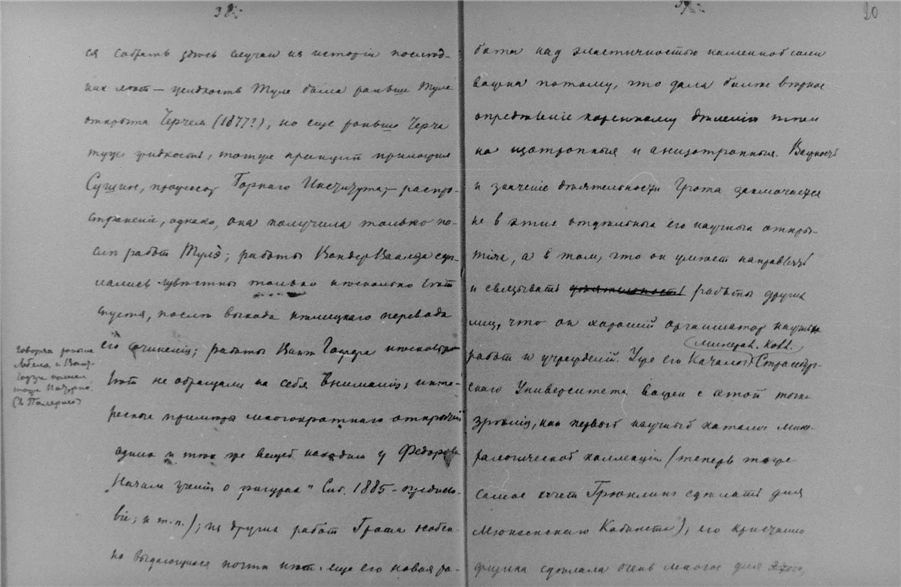 38
ся собрать здесь случаи из исторіи послѣд-
нихъ лѣтъ — жидкость Туле была раньше Туле
открыта Черчем (1877?), но еще раньше Черча
туже жидкость, тотже принцип приложил
Сущин, професор Горнаго Института — распро-
страненіе, однако, она получила только по-
слѣ работ Туле; работы Вандер Ваальса сдѣ-
лались извѣстны только нѣсколько лѣт
спустя, послѣ выхода нѣмецкаго перевода
его сочиненій; работы Вант Гоффа нѣсколько
лѣт не обращали на себя вниманія; инте-
ресные примѣры многократнаго открытія
одних и тѣх же вещей находим у Федорова
"Начала ученія о фигурах" Спб. 1885 - предисло-
віе; и т. п.); из других работ Грота особен-
но выдающихся почти нѣт. Еще его новая ра-
говорят раньше
тоже
(в Палермо)
39
20
бота над эластичностью каменной соли
важна потому, что дала болѣе вѣрное
опредѣленіе коренному дѣленію тѣл
на изотропныя и анизотропныя. Важность
и значеніе дѣятельности Грота заключается
не в этих отдѣльных его научных откры-
тіях, а в том, что он умѣет направлять
и связывать работы других
лиц, что он хорошій организатор научных
работ и учрежденій. Уже его Каталог Страсбур-
минерал. колл.
скаго Университета важен с этой точки
зрѣнія, как первый научный каталог мине-
ралогической коллекціи (теперь тоже
самое хочет Грюнлинг сдѣлать для
Мюнхенскаго Кабинета); его
физика сдѣлала очень многое для этого,